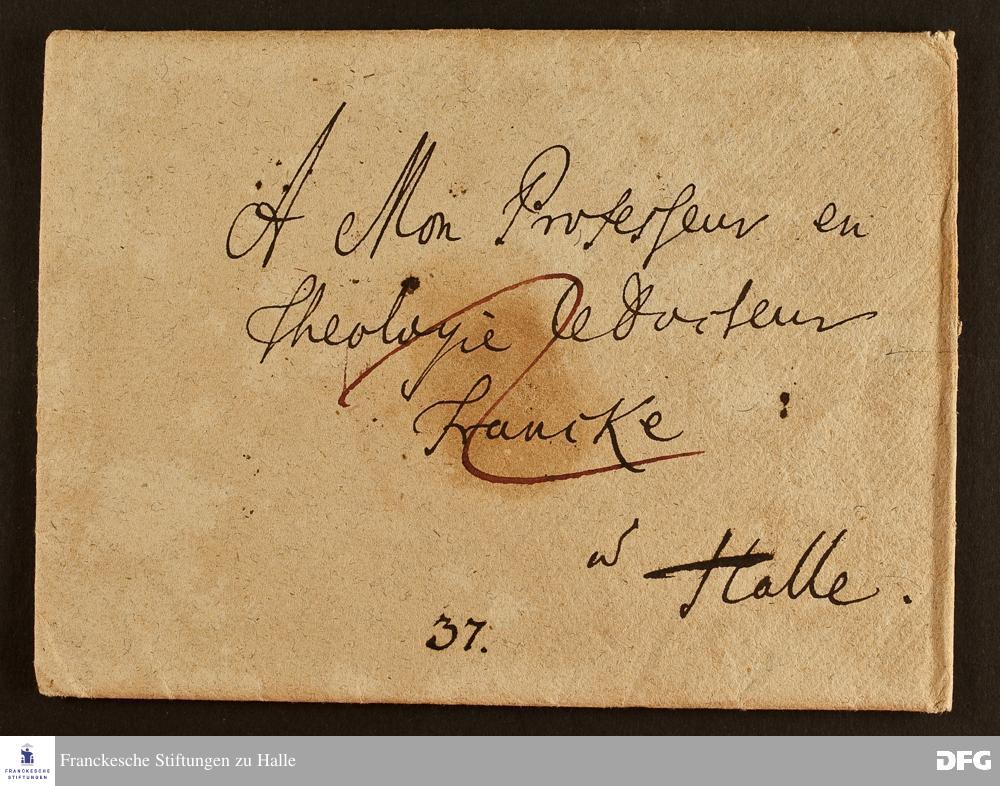 A Mon Professeur en
Theologie le Docteur
Francke
a Halle.
37.
FRANCKESCHE
STIFTUNGEN
Franckesche Stiftungen zu Halle
DFG